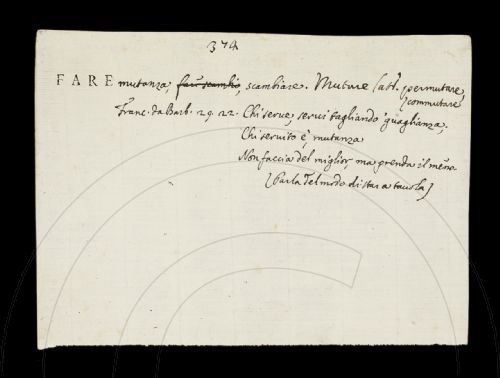 374
FARE mutanza, far scambio, scambiare. Mutare Latt. permutare,
commutare
Franc. da Barb. 29. 22. Chi serve, servi tagliando guaglianza,
Chi servito è, mutanza
Non faccia del miglior ma prenda il meno
[Parla del modo di star a tavola]